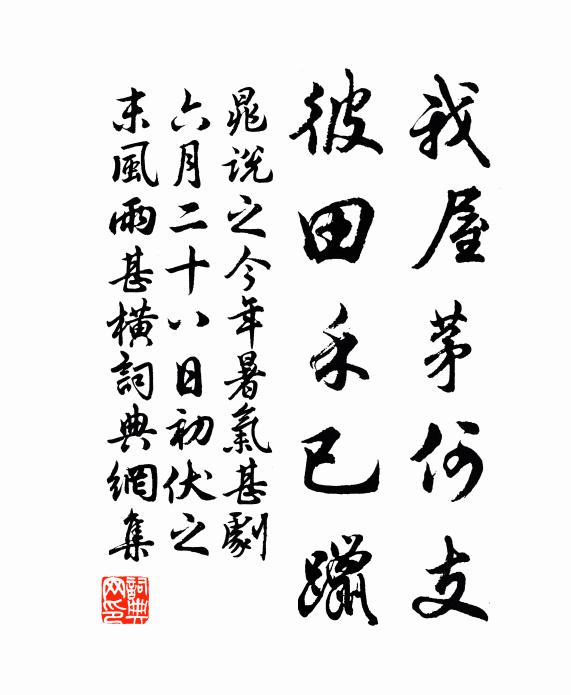 我屋茅何支
彼田禾已躐
晁說之今年暑氣甚劇
六月二十八日初伏之
末風雨甚橫詞典網集
詞典
网印